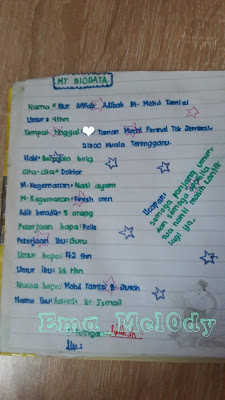 MY BIODATA
Nama = Nur Afifah Adibah Bt. Mohd Tamizi
Umur = 9thn
Tempat tinggal = Taman Permai Tok Jembal
21300 Kuala Terengganu.
Hobi = belg
Cita-cita = Doktor
M. Kegemaran = Nasi ayam
M. Kegemaran = Fresh oren
Adik beradik = 5 orang
Pekerjaan bapa = Polis
Pekerjaan Ibu = Guru
Umur bapa = 42 thn
Umur ibu = thn
Nama bapa = Mohd Tamizi B. Junoh
Nama Ibu = Bt. Ismail
Ucapan:
Semoga panjang umur,
dan semoga apabila
tua nanti masih cantik
lagi ya,
Ema Mel0dy